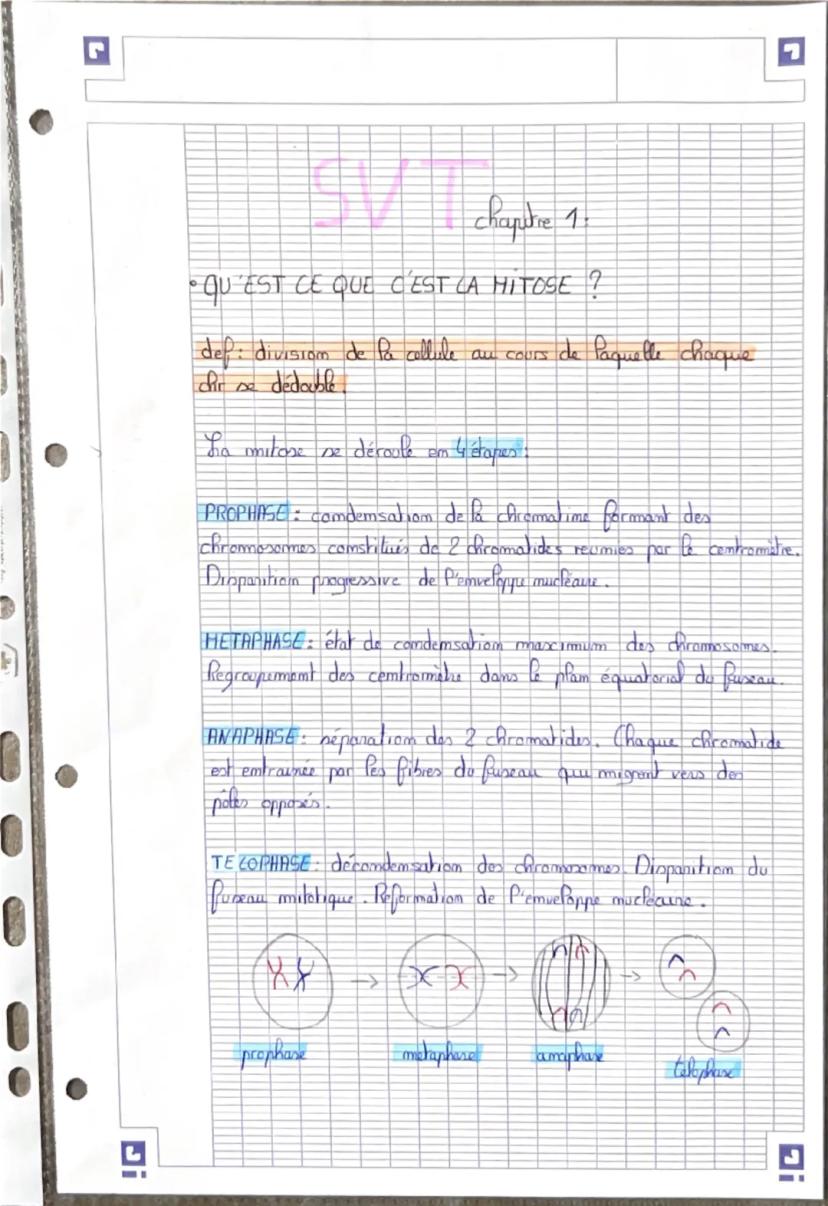 SVT chapitre 1:
• QU'EST CE QUE C'EST LA MITOSE ?
def: division de la cellule au cours de laquelle chaque
chr se dédouble.
La mitose se déroule en 4 étapes:
PROPHASE: condensation de la chromatine formant des
chromosomes constitués de 2 chromatides reunies par le centromètre.
Disparition progressive de l'enveloppe nucléaire.
METAPHASE: état de condensation maximum des chromosomes.
Regroupement des centromètre dans le plan équatorial du fuseau.
ANAPHASE: séparation des 2 chromatides. Chaque chromatide
est entrainée par les fibres du fuseau qui migrent vers des
pôles opposés.
TELOPHASE: décondensation des chromosomes. Disparition du
fuseau mitotique. Reformation de l'enveloppe nucléaire.
prophase métaphase anaphase télophase